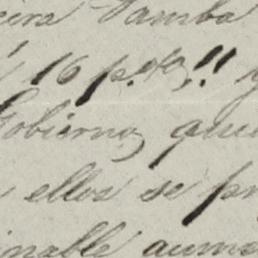 cera Tamba
16 p.tas!! y
Gobierno, que
ellos se pr
inable aume